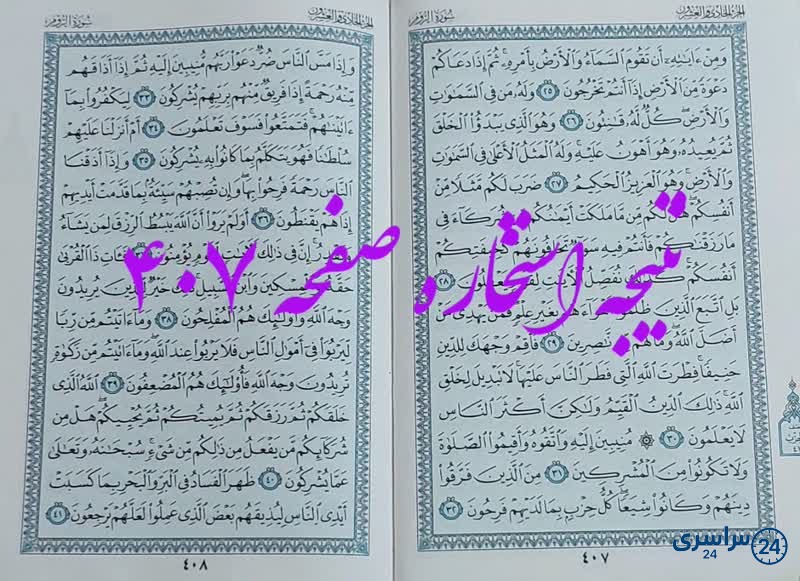 الجزء الحادي والعشرون
سُورَةُ الرُّومِ
وَمِنْ ءَايَٰتِهِۦٓ أَن تَقُومَ ٱلسَّمَآءُ وَٱلْأَرْضُ بِأَمْرِهِۦ ۚ ثُمَّ إِذَا دَعَاكُمْ
دَعْوَةً مِّنَ ٱلْأَرْضِ إِذَآ أَنتُمْ تَخْرُجُونَ ٢٥ وَلَهُۥ مَن فِى ٱلسَّمَٰوَٰتِ
وَٱلْأَرْضِ ۖ كُلٌّ لَّهُۥ قَٰنِتُونَ ٢٦ وَهُوَ ٱلَّذِى يَبْدَؤُا۟ ٱلْخَلْقَ
ثُمَّ يُعِيدُهُۥ وَهُوَ أَهْوَنُ عَلَيْهِ ۚ وَلَهُ ٱلْمَثَلُ ٱلْأَعْلَىٰ فِى ٱلسَّمَٰوَٰتِ
وَٱلْأَرْضِ ۚ وَهُوَ ٱلْعَزِيزُ ٱلْحَكِيمُ ٢٧ ضَرَبَ لَكُم مَّثَلًا مِّنْ
أَنفُسِكُمْ ۖ هَل لَّكُم مِّن مَّا مَلَكَتْ أَيْمَٰنُكُم مِّن شُرَكَآءَ فِى
مَا رَزَقْنَٰكُمْ فَأَنتُمْ فِيهِ سَوَآءٌ تَخَافُونَهُمْ كَخِيفَتِكُمْ
أَنفُسَكُمْ ۚ كَذَٰلِكَ نُفَصِّلُ ٱلْءَايَٰتِ لِقَوْمٍ يَعْقِلُونَ ٢٨
بَلِ ٱتَّبَعَ ٱلَّذِينَ ظَلَمُوٓا۟ أَهْوَآءَهُم بِغَيْرِ عِلْمٍ ۖ فَمَن يَهْدِى مَنْ
أَضَلَّ ٱللَّهُ ۖ وَمَا لَهُم مِّن نَّٰصِرِينَ ٢٩ فَأَقِمْ وَجْهَكَ لِلدِّينِ
حَنِيفًا ۚ فِطْرَتَ ٱللَّهِ ٱلَّتِى فَطَرَ ٱلنَّاسَ عَلَيْهَا ۚ لَا تَبْدِيلَ لِخَلْقِ
ٱللَّهِ ۚ ذَٰلِكَ ٱلدِّينُ ٱلْقَيِّمُ وَلَٰكِنَّ أَكْثَرَ ٱلنَّاسِ
لَا يَعْلَمُونَ ٣٠ ۞ مُنِيبِينَ إِلَيْهِ وَٱتَّقُوهُ وَأَقِيمُوا۟ ٱلصَّلَوٰةَ
وَلَا تَكُونُوا۟ مِنَ ٱلْمُشْرِكِينَ ٣١ مِنَ ٱلَّذِينَ فَرَّقُوا۟
دِينَهُمْ وَكَانُوا۟ شِيَعًا ۖ كُلُّ حِزْبٍۭ بِمَا لَدَيْهِمْ فَرِحُونَ ٣٢
٤٠٧
الجزء الحادي والعشرون
سُورَةُ الرُّومِ
وَإِذَا مَسَّ ٱلنَّاسَ ضُرٌّ دَعَوْا۟ رَبَّهُم مُّنِيبِينَ إِلَيْهِ ثُمَّ إِذَآ أَذَاقَهُم
مِّنْهُ رَحْمَةً إِذَا فَرِيقٌ مِّنْهُم بِرَبِّهِمْ يُشْرِكُونَ ٣٣ لِيَكْفُرُوا۟ بِمَآ
ءَاتَيْنَٰهُمْ ۚ فَتَمَتَّعُوا۟ فَسَوْفَ تَعْلَمُونَ ٣٤ أَمْ أَنزَلْنَا عَلَيْهِمْ
سُلْطَٰنًا فَهُوَ يَتَكَلَّمُ بِمَا كَانُوا۟ بِهِۦ يُشْرِكُونَ ٣٥ وَإِذَآ أَذَقْنَا
ٱلنَّاسَ رَحْمَةً فَرِحُوا۟ بِهَا ۖ وَإِن تُصِبْهُمْ سَيِّئَةٌۢ بِمَا قَدَّمَتْ أَيْدِيهِمْ
إِذَا هُمْ يَقْنَطُونَ ٣٦ أَوَلَمْ يَرَوْا۟ أَنَّ ٱللَّهَ يَبْسُطُ ٱلرِّزْقَ لِمَن يَشَآءُ
وَيَقْدِرُ ۚ إِنَّ فِى ذَٰلِكَ لَءَايَٰتٍ لِّقَوْمٍ يُؤْمِنُونَ ٣٧ فَـَٔاتِ ذَا ٱلْقُرْبَىٰ
حَقَّهُۥ وَٱلْمِسْكِينَ وَٱبْنَ ٱلسَّبِيلِ ۚ ذَٰلِكَ خَيْرٌ لِّلَّذِينَ يُرِيدُونَ
وَجْهَ ٱللَّهِ ۖ وَأُو۟لَٰٓئِكَ هُمُ ٱلْمُفْلِحُونَ ٣٨ وَمَآ ءَاتَيْتُم مِّن رِّبًا
لِّيَرْبُوَا۟ فِىٓ أَمْوَٰلِ ٱلنَّاسِ فَلَا يَرْبُوا۟ عِندَ ٱللَّهِ ۖ وَمَآ ءَاتَيْتُم مِّن زَكَوٰةٍ
تُرِيدُونَ وَجْهَ ٱللَّهِ فَأُو۟لَٰٓئِكَ هُمُ ٱلْمُضْعِفُونَ ٣٩ ٱللَّهُ ٱلَّذِى
خَلَقَكُمْ ثُمَّ رَزَقَكُمْ ثُمَّ يُمِيتُكُمْ ثُمَّ يُحْيِيكُمْ ۖ هَلْ مِن
شُرَكَآئِكُم مَّن يَفْعَلُ مِن ذَٰلِكُم مِّن شَىْءٍ ۚ سُبْحَٰنَهُۥ وَتَعَٰلَىٰ
عَمَّا يُشْرِكُونَ ٤٠ ظَهَرَ ٱلْفَسَادُ فِى ٱلْبَرِّ وَٱلْبَحْرِ بِمَا كَسَبَتْ
أَيْدِى ٱلنَّاسِ لِيُذِيقَهُم بَعْضَ ٱلَّذِى عَمِلُوا۟ لَعَلَّهُمْ يَرْجِعُونَ ٤١
٤٠٨
نتیجه استخاره صفحه ۴۰۷
سراسری
24
24